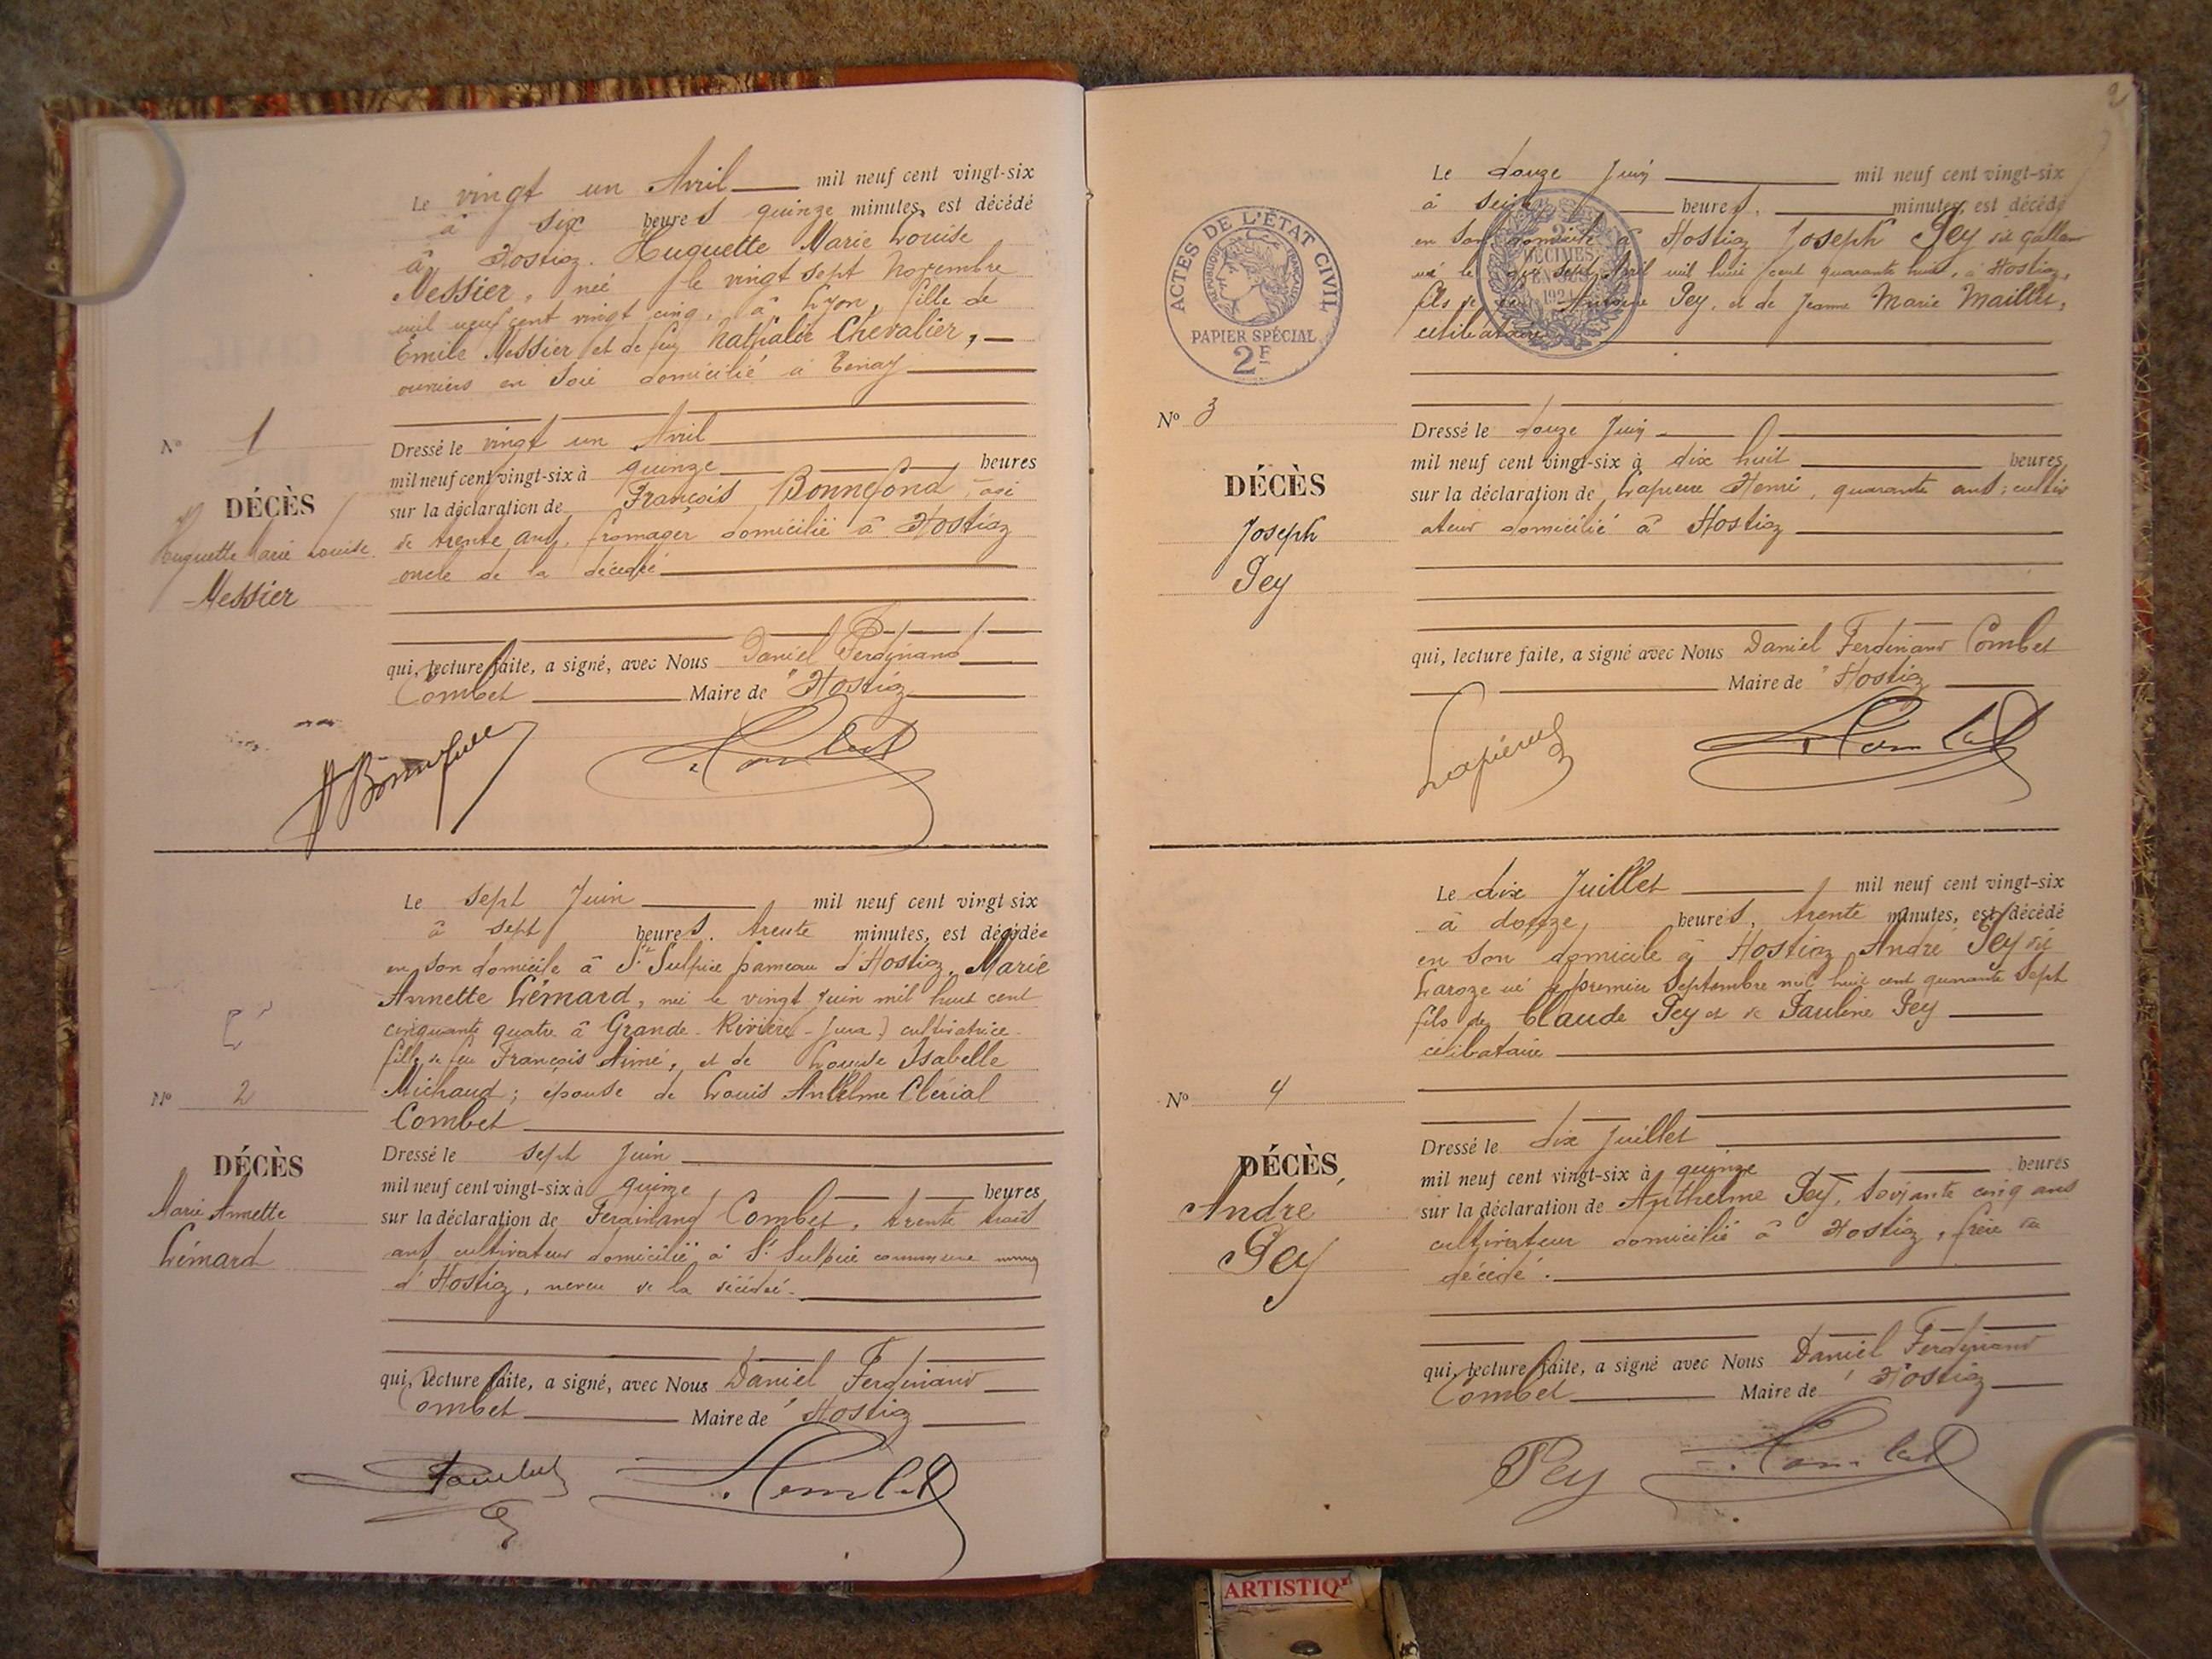 Le vingt un Avril mil neuf cent vingt-six
à six heures quinze minutes, est décédé
à Hostiaz. Huguette Marie Louise
Messier, née le vingt sept Novembre
mil neuf cent vingt cinq, à Lyon, fille de
Emile Messier et de feu Nathalie Chevalier,
ouvriers en soie domicilié à Tenay
Nº 1
DÉCÈS
Huguette Marie Louise
Messier
Dressé le vingt un Avril
mil neuf cent vingt-six à quinze heures
sur la déclaration de François Bonnefond, agé
de trente ans, fromager domicilié à Hostiaz
oncle de la décédée
qui, lecture faite, a signé, avec Nous Daniel Ferdinand
Combet Maire de Hostiaz
Combet
Le sept Juin mil neuf cent vingt-six
à sept heures. trente minutes, est décédée
en son domicile à St Sulpice hameau d'Hostiaz, Marie
Annette Lémard, née le vingt Juin mil huit cent
cinquante quatre à Grande-Rivière (Jura) cultivatrice
fille de feu François Aimé, et de Louise Isabelle
Michaud; épouse de Louis Anthelme Clérial
Combet
Nº 2
DÉCÈS
Marie Annette
Lémard
Dressé le sept Juin
mil neuf cent vingt-six à quinze heures
sur la déclaration de Ferdinand Combet, trente trois
ans cultivateur domicilié à St Sulpice commune
d'Hostiaz, neveu de la décédée.
qui, lecture faite, a signé, avec Nous Daniel Ferdinand
Combet Maire de Hostiaz
Combet
2
Le douze Juin mil neuf cent vingt-six
à seize heures, minutes, est décédé
en son domicile à Hostiaz Joseph Pey dit
né le dix sept Avril mil huit cent quarante huit, à Hostiaz,
fils de Antoine Pey, et de Jeanne Marie Maillet,
célibataire
ACTES DE L'ÉTAT CIVIL
RÉPUBLIQUE FRANÇAISE
PAPIER SPÉCIAL
2F
2
DÉCIMES
EN SUS
1924
Nº 3
DÉCÈS
Joseph
Pey
Dressé le douze Juin
mil neuf cent vingt-six à dix huit heures
sur la déclaration de Lapierre Henri, quarante ans; cultiv
ateur domicilié à Hostiaz
qui, lecture faite, a signé avec Nous Daniel Ferdinand Combet
Maire de Hostiaz
Lapierre
Combet
Le dix Juillet mil neuf cent vingt-six
à douze heures, trente minutes, est décédé
en son domicile à Hostiaz André Pey dit
Laroze né le premier Septembre mil huit cent quarante sept
fils de Claude Pey et de Pauline Pey
célibataire
Nº 4
DÉCÈS
Andre
Pey
Dressé le dix Juillet
mil neuf cent vingt-six à quinze heures
sur la déclaration de Anthelme Pey, soixante cinq ans
cultivateur domicilié à Hostiaz, frère du
décédé.
qui, lecture faite, a signé avec Nous Daniel Ferdinand
Combet Maire de Hostiaz
Pey
Combet
ARTISTIQ